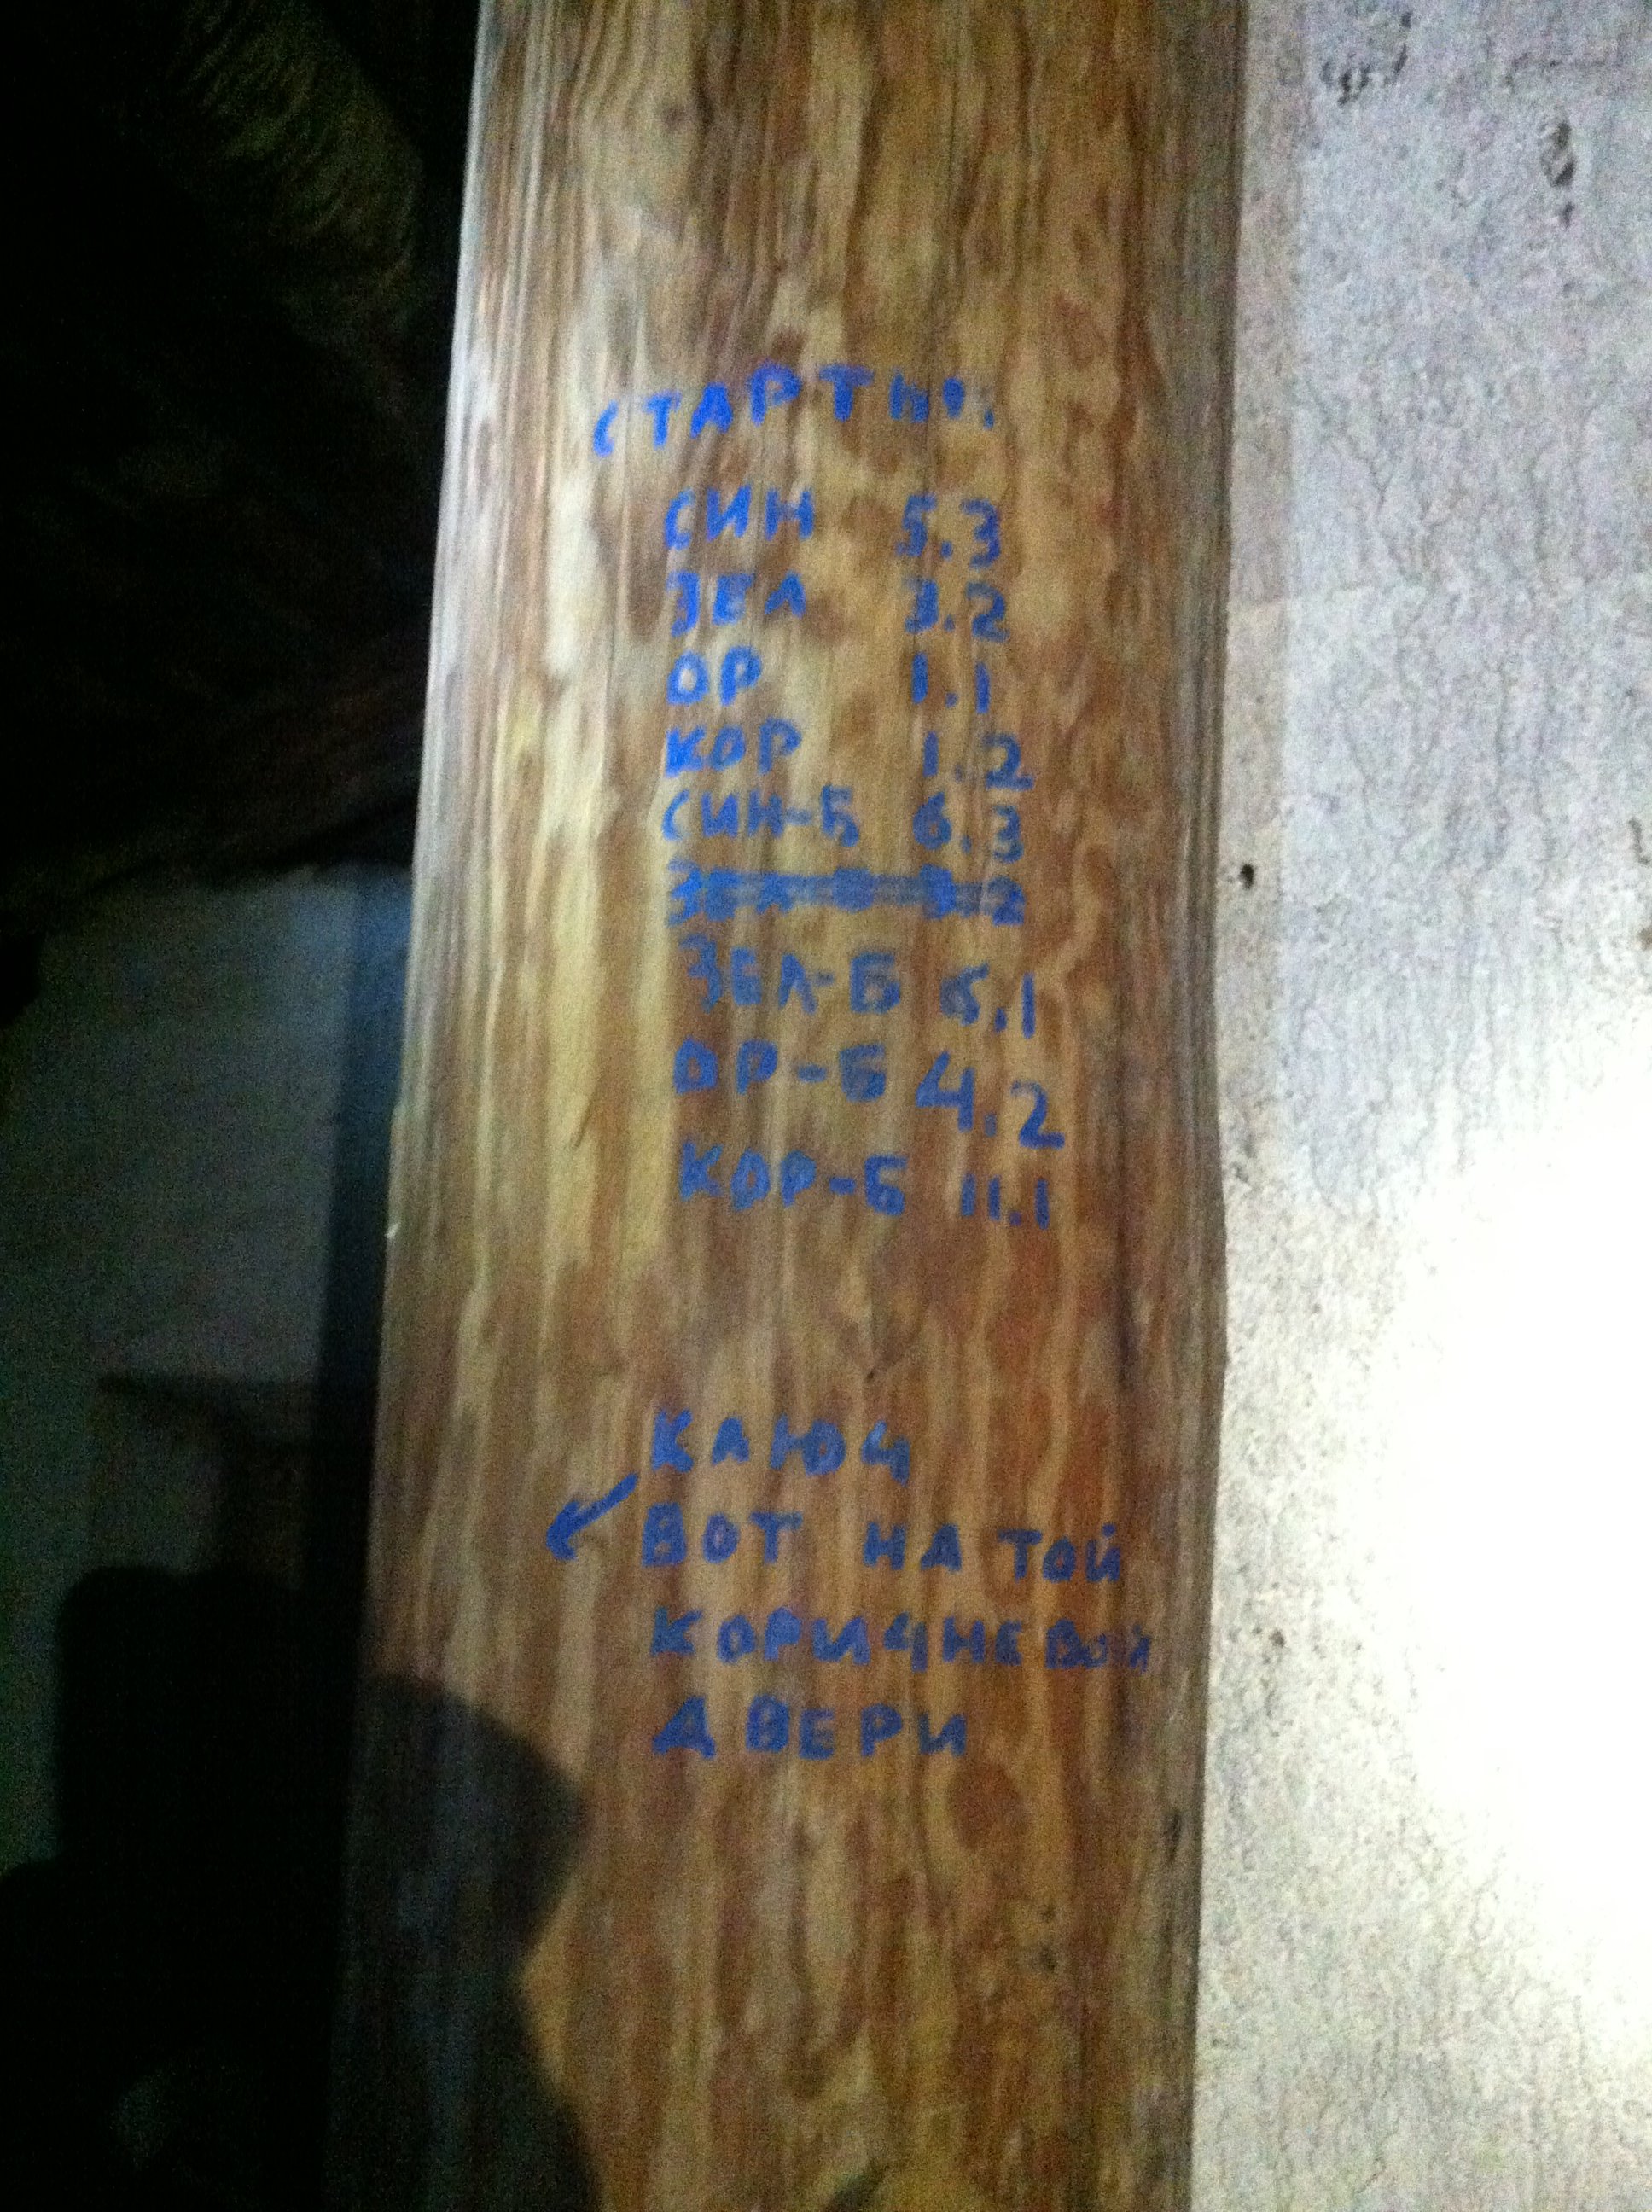 СТАРТЫ:
СИН 5.3
ЗЕЛ 3.2
ОР 1.1
КОР 1.2
СИН-Б 6.3
ЗЕЛ-Б 5.1
ОР-Б 4.2
КОР-Б 11.1
КЛЮЧ
ВОТ НА ТОЙ
КОРИЧНЕВОЙ
ДВЕРИ